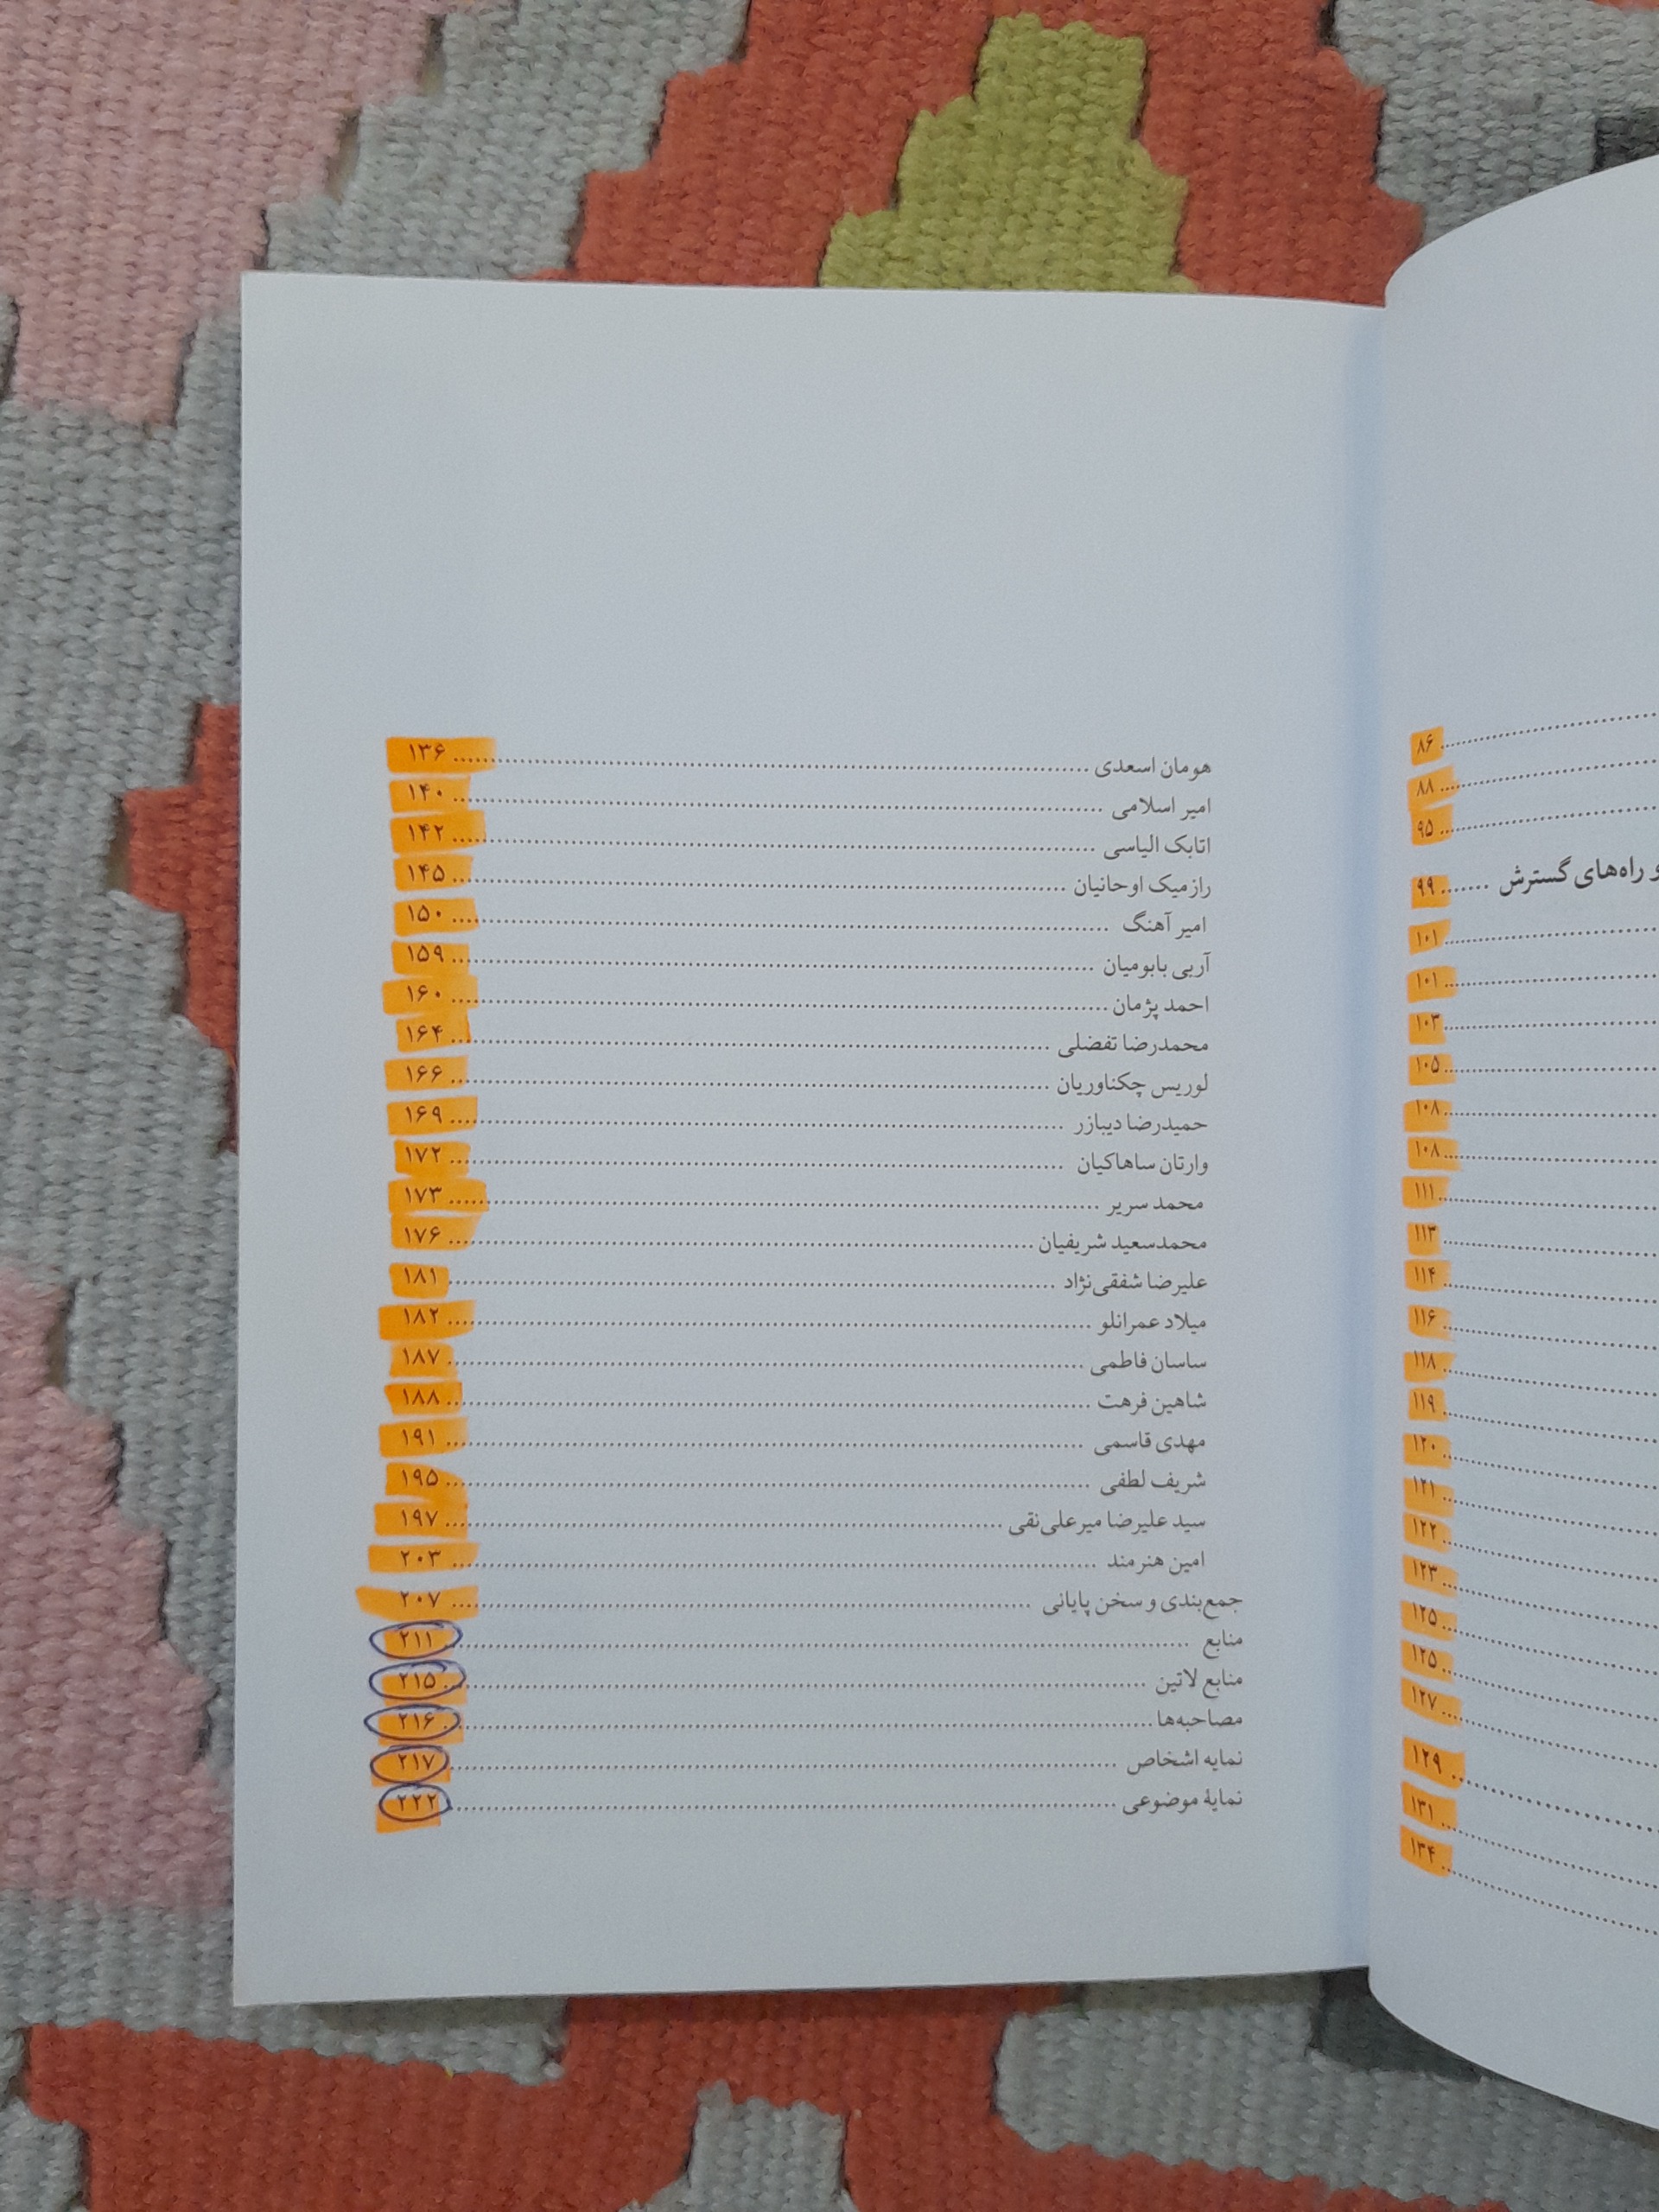 ۸۶
۸۸
۹۵
و راه‌های گسترش ....... ۹۹
۱۰۱
۱۰۱
۱۰۳
۱۰۵
۱۰۸
۱۰۸
۱۱۱
۱۱۳
۱۱۴
۱۱۶
۱۱۸
۱۱۹
۱۲۰
۱۲۱
۱۲۲
۱۲۳
۱۲۵
۱۲۵
۱۲۷
۱۲۹
۱۳۱
۱۳۴
هومان اسعدی ....... ۱۳۶
امیر اسلامی ....... ۱۴۰
اتابک الیاسی ....... ۱۴۲
رازمیک اوحانیان ....... ۱۴۵
امیر آهنگ ....... ۱۵۰
آربی بابومیان ....... ۱۵۹
احمد پژمان ....... ۱۶۰
محمدرضا تفضلی ....... ۱۶۴
لوریس چکناوریان ....... ۱۶۶
حمیدرضا دیبازر ....... ۱۶۹
وارتان ساهاکیان ....... ۱۷۲
محمد سریر ....... ۱۷۳
محمدسعید شریفیان ....... ۱۷۶
علیرضا شفقی‌نژاد ....... ۱۸۱
میلاد عمرانلو ....... ۱۸۲
ساسان فاطمی ....... ۱۸۷
شاهین فرهت ....... ۱۸۸
مهدی قاسمی ....... ۱۹۱
شریف لطفی ....... ۱۹۵
سید علیرضا میرعلی‌نقی ....... ۱۹۷
امین هنرمند ....... ۲۰۳
جمع‌بندی و سخن پایانی ....... ۲۰۷
منابع ....... ۲۱۱
منابع لاتین ....... ۲۱۵
مصاحبه‌ها ....... ۲۱۶
نمایه اشخاص ....... ۲۱۷
نمایهٔ موضوعی ....... ۲۲۲